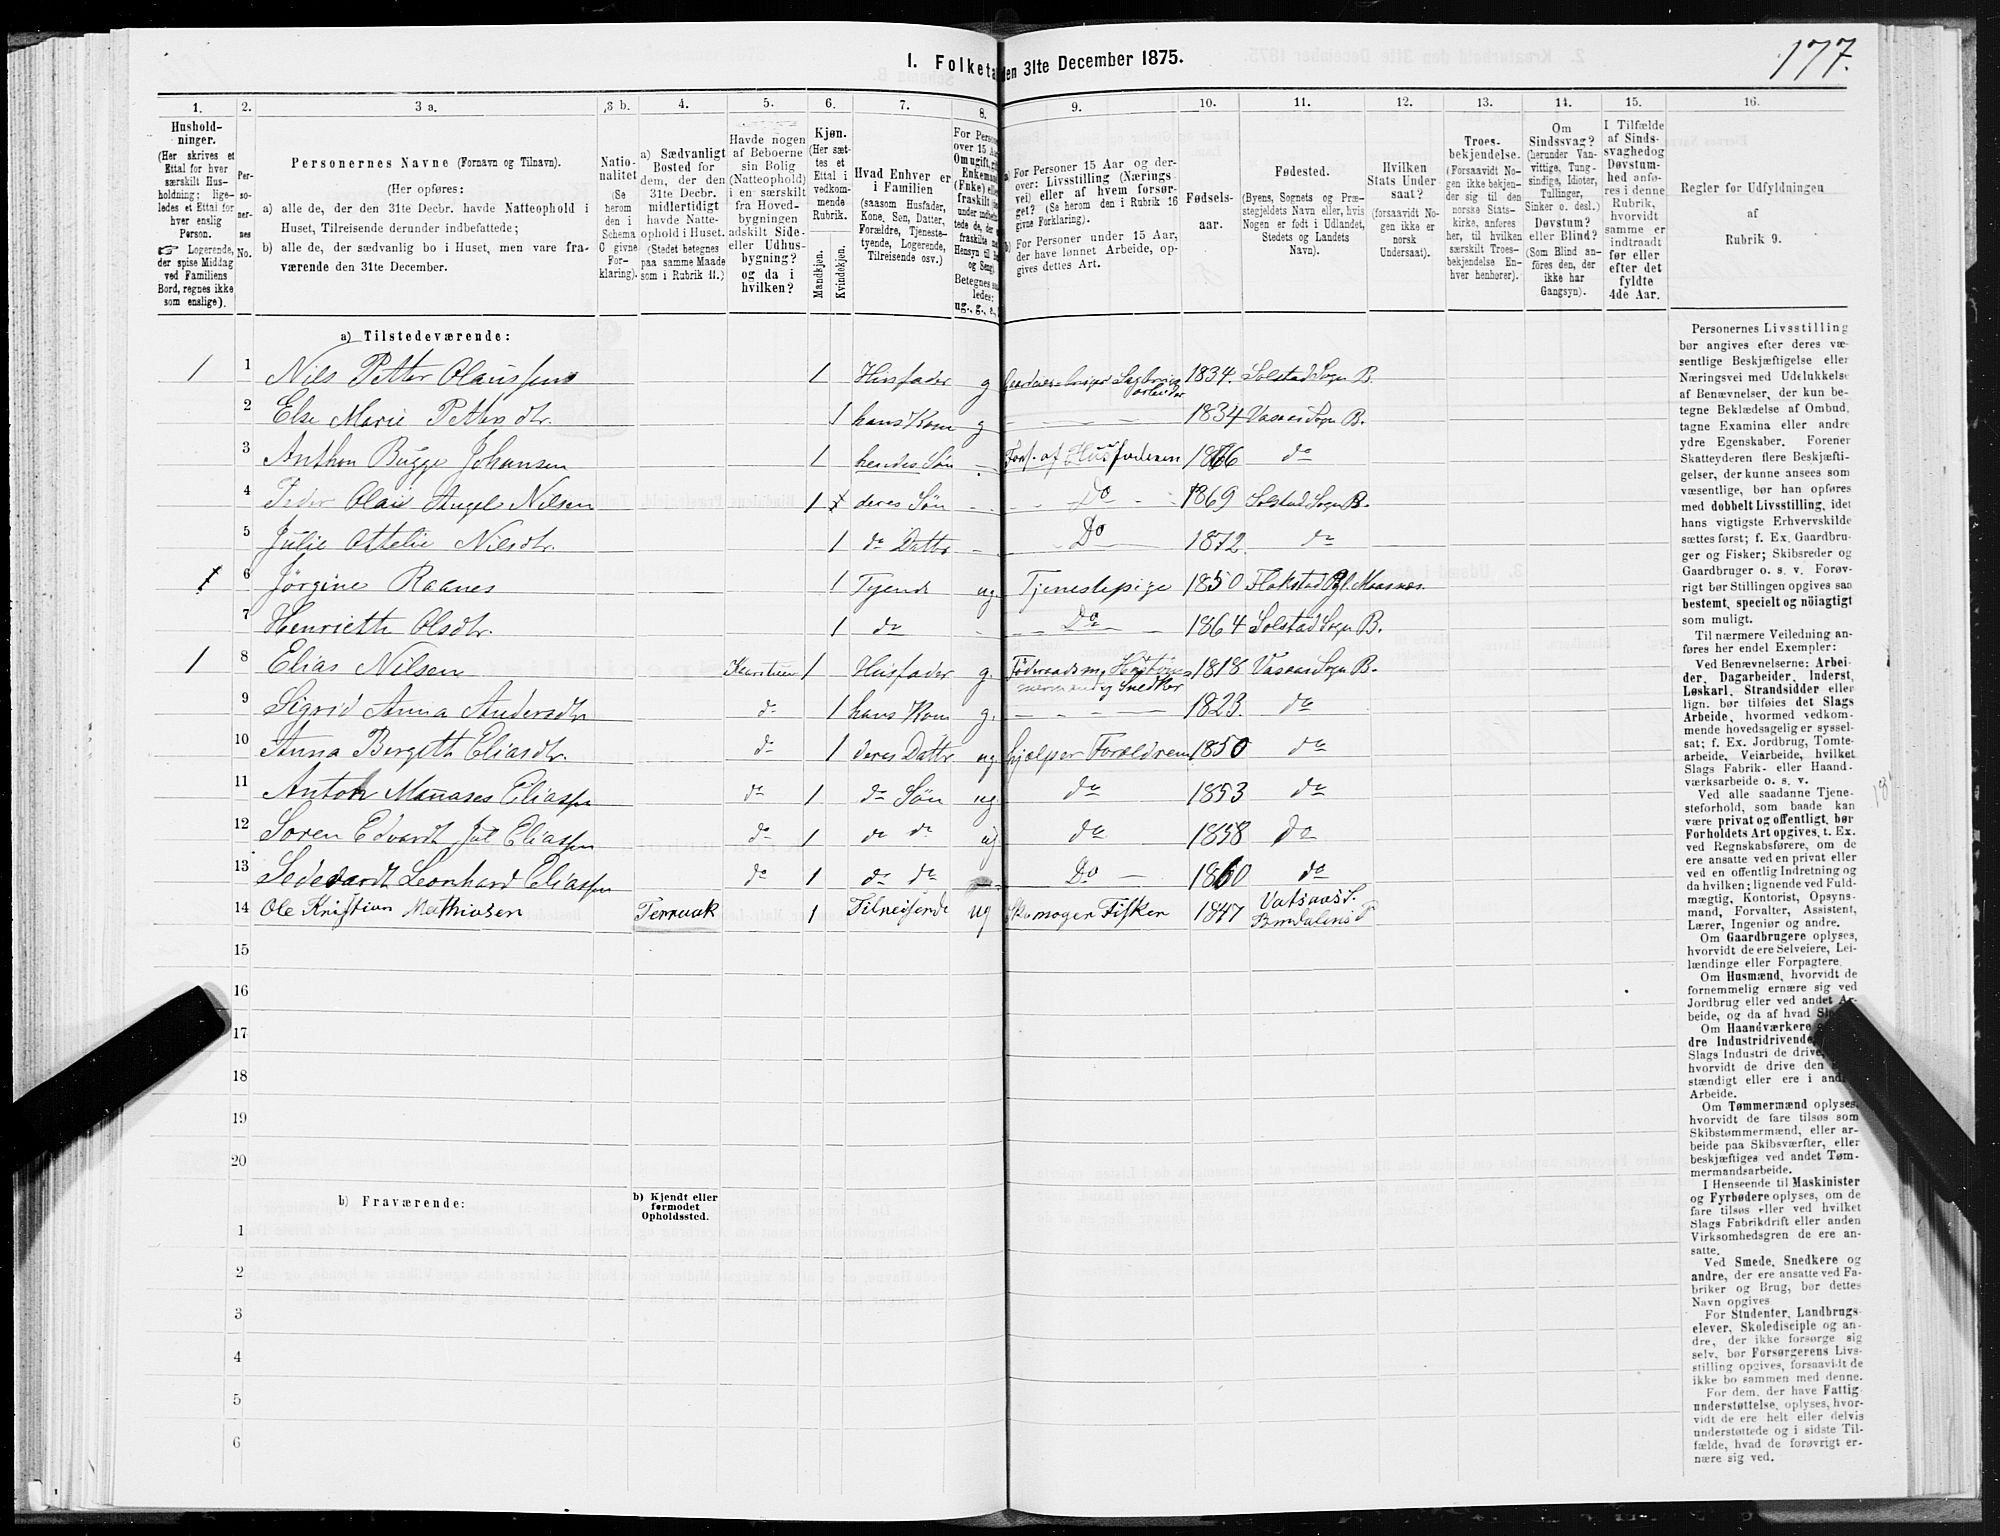 177.
I. Folketa
den 31te December 1875.
1. 2. 3 a. 3 b. 4. 5. 6. 7. 8. 9. 10. 11. 12. 13. 14. 15. 16.
Hushold-
ninger.
(Her skrives et
Ettal for hver
særskilt Hus-
holdning; lige-
ledes et Ettal for
hver enslig
Person.
☞ Logerende,
der spise Middag
ved Familiens
Bord, regnes ikke
som enslige).
Per-
so-
ner-
nes
No.
Personernes Navne (Fornavn og Tilnavn).
(Her opføres:
a) alle de, der den 31te Decbr. havde Natteophold i
Huset, Tilreisende derunder indbefattede;
b) alle de, der sædvanlig bo i Huset, men vare fra-
værende den 31te December.
Natio-
nalitet
(Se
herom
den i
Schema
C givne
For-
klaring).
a) Sædvanligt
Bosted for
dem, der den
31te Decbr.
midlertidigt
havde Natte-
ophold i Huset.
(Stedet betegnes
paa samme Maade
som i Rubrik 11.)
Havde nogen
af Beboerne
sin Bolig
(Natteophold)
i en særskilt
fra Hoved-
bygningen
adskilt Side-
eller Udhus-
bygning?
og da i
hvilken?
Kjøn.
(Her sæt-
tes et
Ettal i
vedkom-
mende
Rubrik.
Mandkjøn.
Kvindekjøn.
Hvad Enhver er
i Familien
(saasom Husfader,
Kone, Søn, Datter,
Forældre, Tjeneste-
tyende, Logerende,
Tilreisende osv.)
For Person
over 15 Aa
Om ugift, gi
Enkeman
(Enke) elle
fraskilt
Betegnes saa
ledes:
ug., g., e.,
a) For Personer 15 Aar og der-
over: Livsstilling (Nærings-
vei) eller af hvem forsør-
get? (Se herom den i Rubrik 16
givne Forklaring).
b) For Personer under 15 Aar,
der have lønnet Arbeide, op-
gives dettes Art.
Fødsels-
aar.
Fødested.
(Byens, Sognets og Præ-
stegjeldets Navn eller, hvis
Nogen er født i Udlandet,
Stedets og Landets
Navn).
Hvilken
Stats Under-
saat?
(forsaavidt No-
gen ikke er
norsk
Undersaat).
Troes-
bekjendelse.
(Forsaavidt No-
gen ikke bekjen-
der sig til den
norske Stats-
kirke, anføres
her, til hvilken
særskilt Troes-
bekjendelse En-
hver henhører).
Om
Sindssvag?
(herunder Van-
vittige, Tung-
sindige, Idioter,
Tullinger,
Sinker o. desl.)
Døvstum?
eller Blind?
(Som Blind an-
føres den, der
ikke har
Gangsyn).
I Tilfælde
af Sinds-
svaghed og
Døvstum-
hed anfø-
res i denne
Rubrik,
hvorvidt
samme er
indtraadt
før eller
efter det
fyldte
4de Aar.
Regler for Udfyldningen
af
Rubrik 9.
a) Tilstedeværende:
1 1 Nils Petter Olaussen 1 Husfader g Gaardbruger Sagbrugsarbeider 1834. Solstad Sogn B.
2 Else Marie Pettersdtr. 1 hans Kone g 1834 Vasaas Sogn B.
3 Anthon Bugge Johansen 1 hendes Søn Fors. af Husfaderen 1866 do
4 Peder Olai Angel Nilsen 1 deres Søn Do 1869 Solstad Sogn B.
5 Julie Ottelie Nilsdtr. 1 do Dattr Do 1872. do
1 6 Jørgine Raanes 1 Tyende ug. Tjenestepige 1850 Flakstad
7 Henriette Olsdtr. 1 do Do 1864 Solstad Sogn B.
1 8 Elias Nilsen 1 Husfader g. Føderaadsm. Snedker 1818 Vasaas Sogn B.
9 Sigrid Anna Andersdtr do 1 hans Kone g. 1823. do
10 Anna Bergith Eliasdtr. do 1 deres Dattr ug hjelper Forældrene 1850 do
11 Anton Manases Eliassen do 1 do Søn ug. do 1853 do
12 Søren Edvardt Eliassen do 1 do do ug do 1858 do
13 Leonhard Eliassen do 1 do do Do 1860 do
14 Ole Kristian Mathiasen Terraak 1 Tilreisende ug Skomager Fisker 1847 Vatsaas S. Bindalens P
15
16
17
18
19
20
b) Fraværende:
b) Kjendt eller
formodet
Opholdssted.
1
2
3
4
5
6
Personernes Livsstilling
bør angives efter deres væ-
sentlige Beskjæftigelse eller
Næringsvei med Udelukkelse
af Benævnelser, der kun be-
tegne Beklædelse af Ombud,
tagne Examina eller andre
ydre Egenskaber. Forener
Skatteyderen flere Beskjæfti-
gelser, der kunne ansees som
væsentlige, bør han opføres
med dobbelt Livsstilling, idet
hans vigtigste Erhvervskilde
sættes først; f. Ex. Gaardbru-
ger og Fisker; Skibsreder og
Gaardbruger o. s. v. Forøv-
rigt bør Stillingen opgives saa
bestemt, specielt og nöiagtigt
som muligt.
Til nærmere Veiledning an-
føres her endel Exempler:
Ved Benævnelserne: Arbei-
der, Dagarbeider, Inderst,
Løskarl, Strandsidder eller
lign. bør tilføies det Slags
Arbeide, hvormed vedkom-
mende hovedsagelig er syssel-
sat; f. Ex. Jordbrug, Tomte-
arbeide, Veiarbeide, hvilket
Slags Fabrik- eller Haand-
værksarbeide o. s. v.
Ved alle saadanne Tjene-
steforhold, som baade kan
være privat og offentligt, bør
Forholdets Art opgives, t. Ex.
ved Regnskabsførere, om de
ere ansatte ved en privat eller
ved en offentlig Indretning og
da hvilken; lignende ved Fuld-
mægtig, Kontorist, Opsyns-
mand, Forvalter, Assistent,
Lærer, Ingeniør og andre.
Om Gaardbrugere oplyses,
hvorvidt de ere Selveiere, Lei-
lændinge eller Forpagtere.
Om Husmænd, hvorvidt de
fornemmelig ernære sig ved
Jordbrug eller ved andet Ar-
beide, og da af hvad
Om Haandværkere
dre Industridrivende,
Slags Industri de drive,
hvorvidt de drive den
stændigt eller ere i
Arbeide.
Om Tømmermænd oplyses,
hvorvidt de fare tilsøs som
Skibstømmermænd, eller ar-
beide paa Skibsværfter, eller
beskjæftiges ved andet Tøm-
mermandsarbeide.
I Henseende til Maskinister
og Fyrbødere oplyses, om de
fare tilsøs eller ved hvilket
Slags Fabrikdrift eller anden
Virksomhedsgren de ere an-
satte.
Ved Smede, Snedkere og
andre, der ere ansatte ved Fa-
briker og Brug, bør dettes
Navn opgives
For Studenter, Landbrugs-
elever, Skoledisciple og an-
dre, der ikke forsørge sig
selv, bør Forsørgerens Livs-
stilling opgives, forsaavidt de
ikke bo sammen med denne.
For dem, der have Fattig-
understøttelse, oplyses, hvor-
vidt de ere helt eller delvis
understøttede og i sidste Til-
fælde, hvad de forøvrigt er-
nære sig ved.